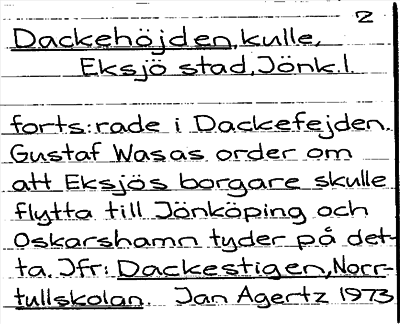 2
Dackehöjden, kulle,
Eksjö stad, Jönk.l.
forts:rade i Dackefejden.
Gustaf Wasas order om
att Eksjös borgare skulle
flytta till Jönköping och
Oskarshamn tyder på det-
ta. Jfr: Dackestigen, Norr-
tullskolan. Jan Agertz 1973